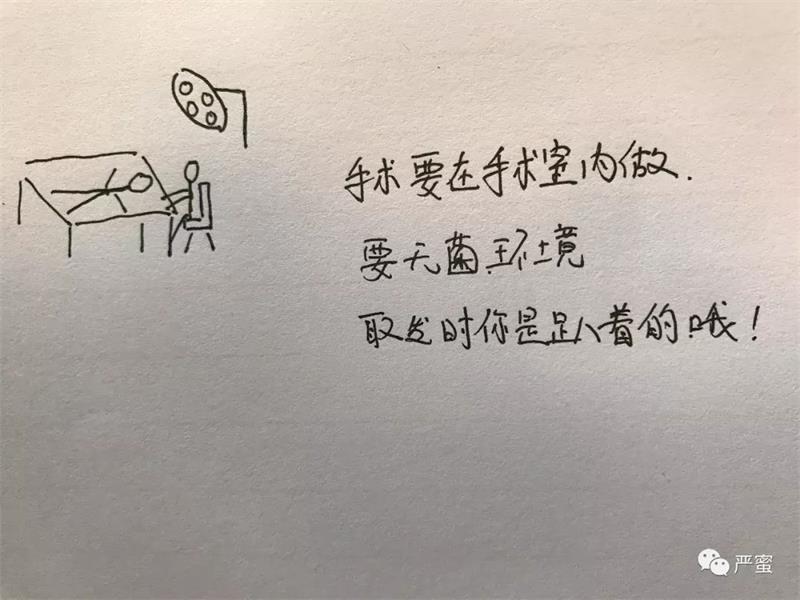 手术要在手术室内做.
要无菌环境
取发时你是趴着的哦!
严蜜